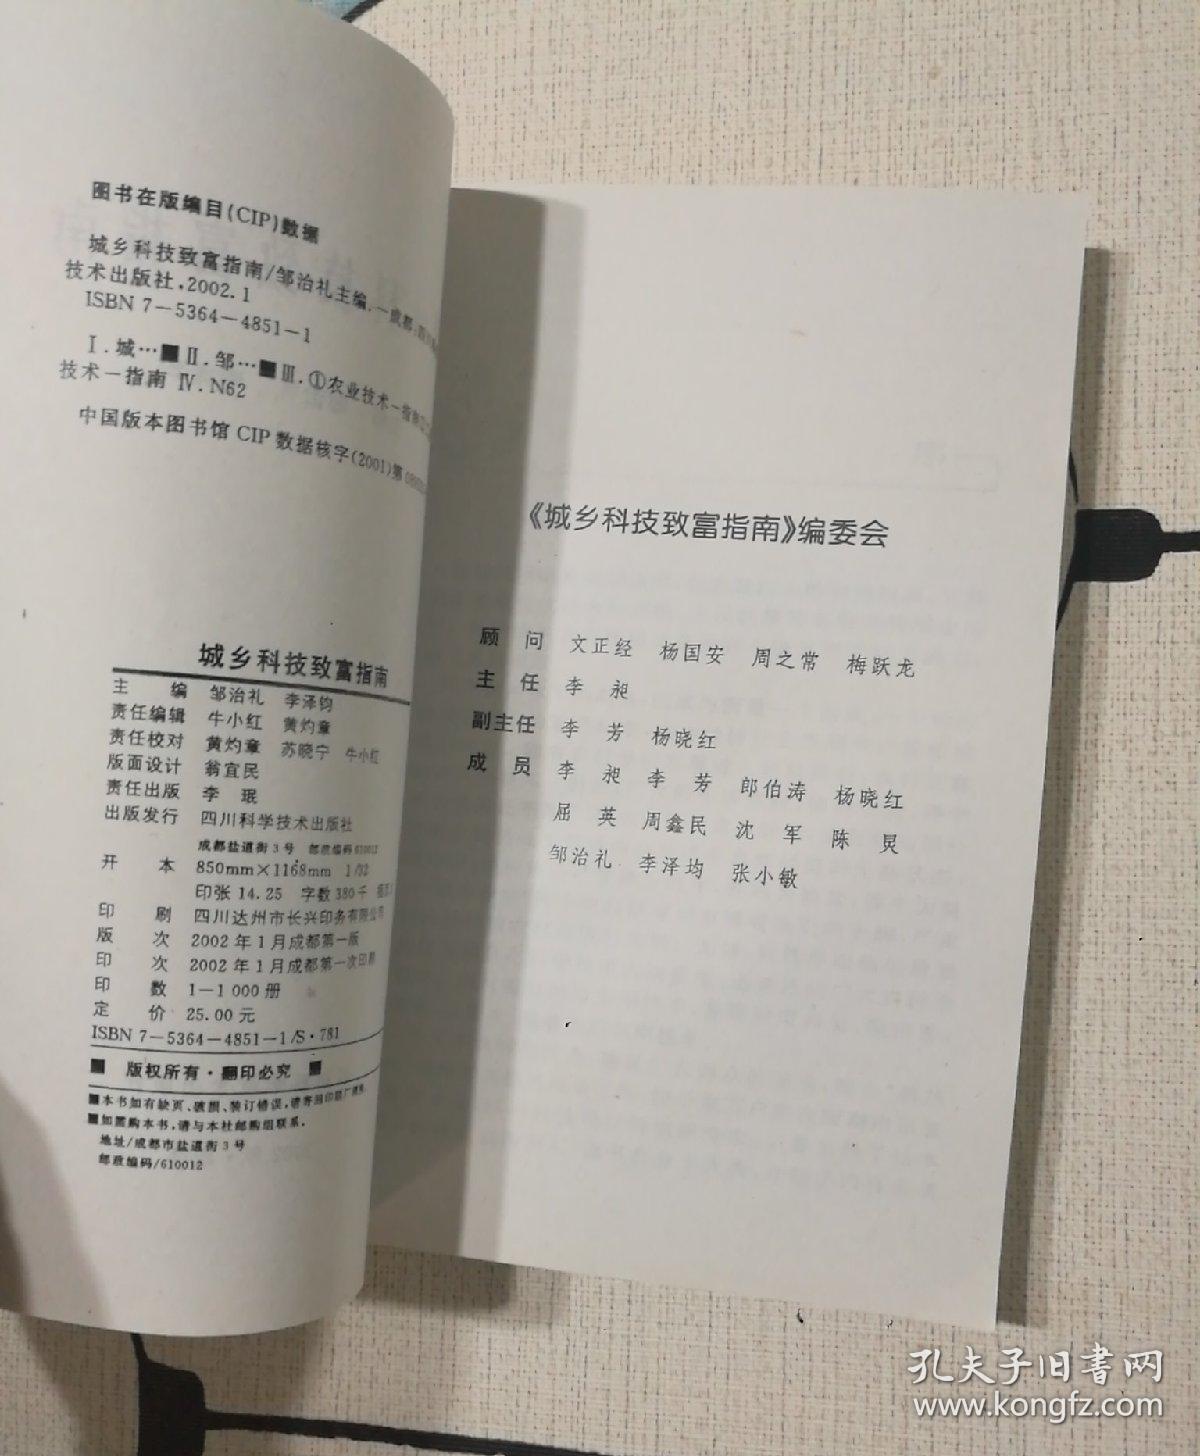 图书在版编目(CIP)数据
城乡科技致富指南/邹治礼主编.—成都:四川
技术出版社,2002.1
ISBN 7－5364－4851－1
Ⅰ.城…■Ⅱ.邹…■Ⅲ.①农业技术－指南
技术－指南 Ⅳ.N62
中国版本图书馆 CIP 数据核字(2001)第
城乡科技致富指南
主 编 邹治礼 李泽钧
责任编辑 牛小红 黄灼章
责任校对 黄灼章 苏晓宁 牛小红
版面设计 翁宜民
责任出版 李 珉
出版发行 四川科学技术出版社
成都盐道街3号 邮政编码610012
开 本 850mm×1168mm 1/32
印张 14.25 字数 380千
印 刷 四川达州市长兴印务有限公司
版 次 2002年1月成都第一版
印 次 2002年1月成都第一次印刷
印 数 1－1 000 册
定 价 25.00 元
ISBN 7－5364－4851－1/S·781
■ 版权所有·翻印必究 ■
■本书如有缺页、破损、装订错误,请寄回印刷厂调换.
■如需购本书,请与本社邮购组联系.
地址/成都市盐道街3号
邮政编码/610012
《城乡科技致富指南》编委会
顾 问 文正经 杨国安 周之常 梅跃龙
主 任 李 昶
副主任 李 芳 杨晓红
成 员 李 昶 李 芳 郎伯涛 杨晓红
屈 英 周鑫民 沈 军 陈 炅
邹治礼 李泽均 张小敏
孔夫子旧书网
www.kongfz.com